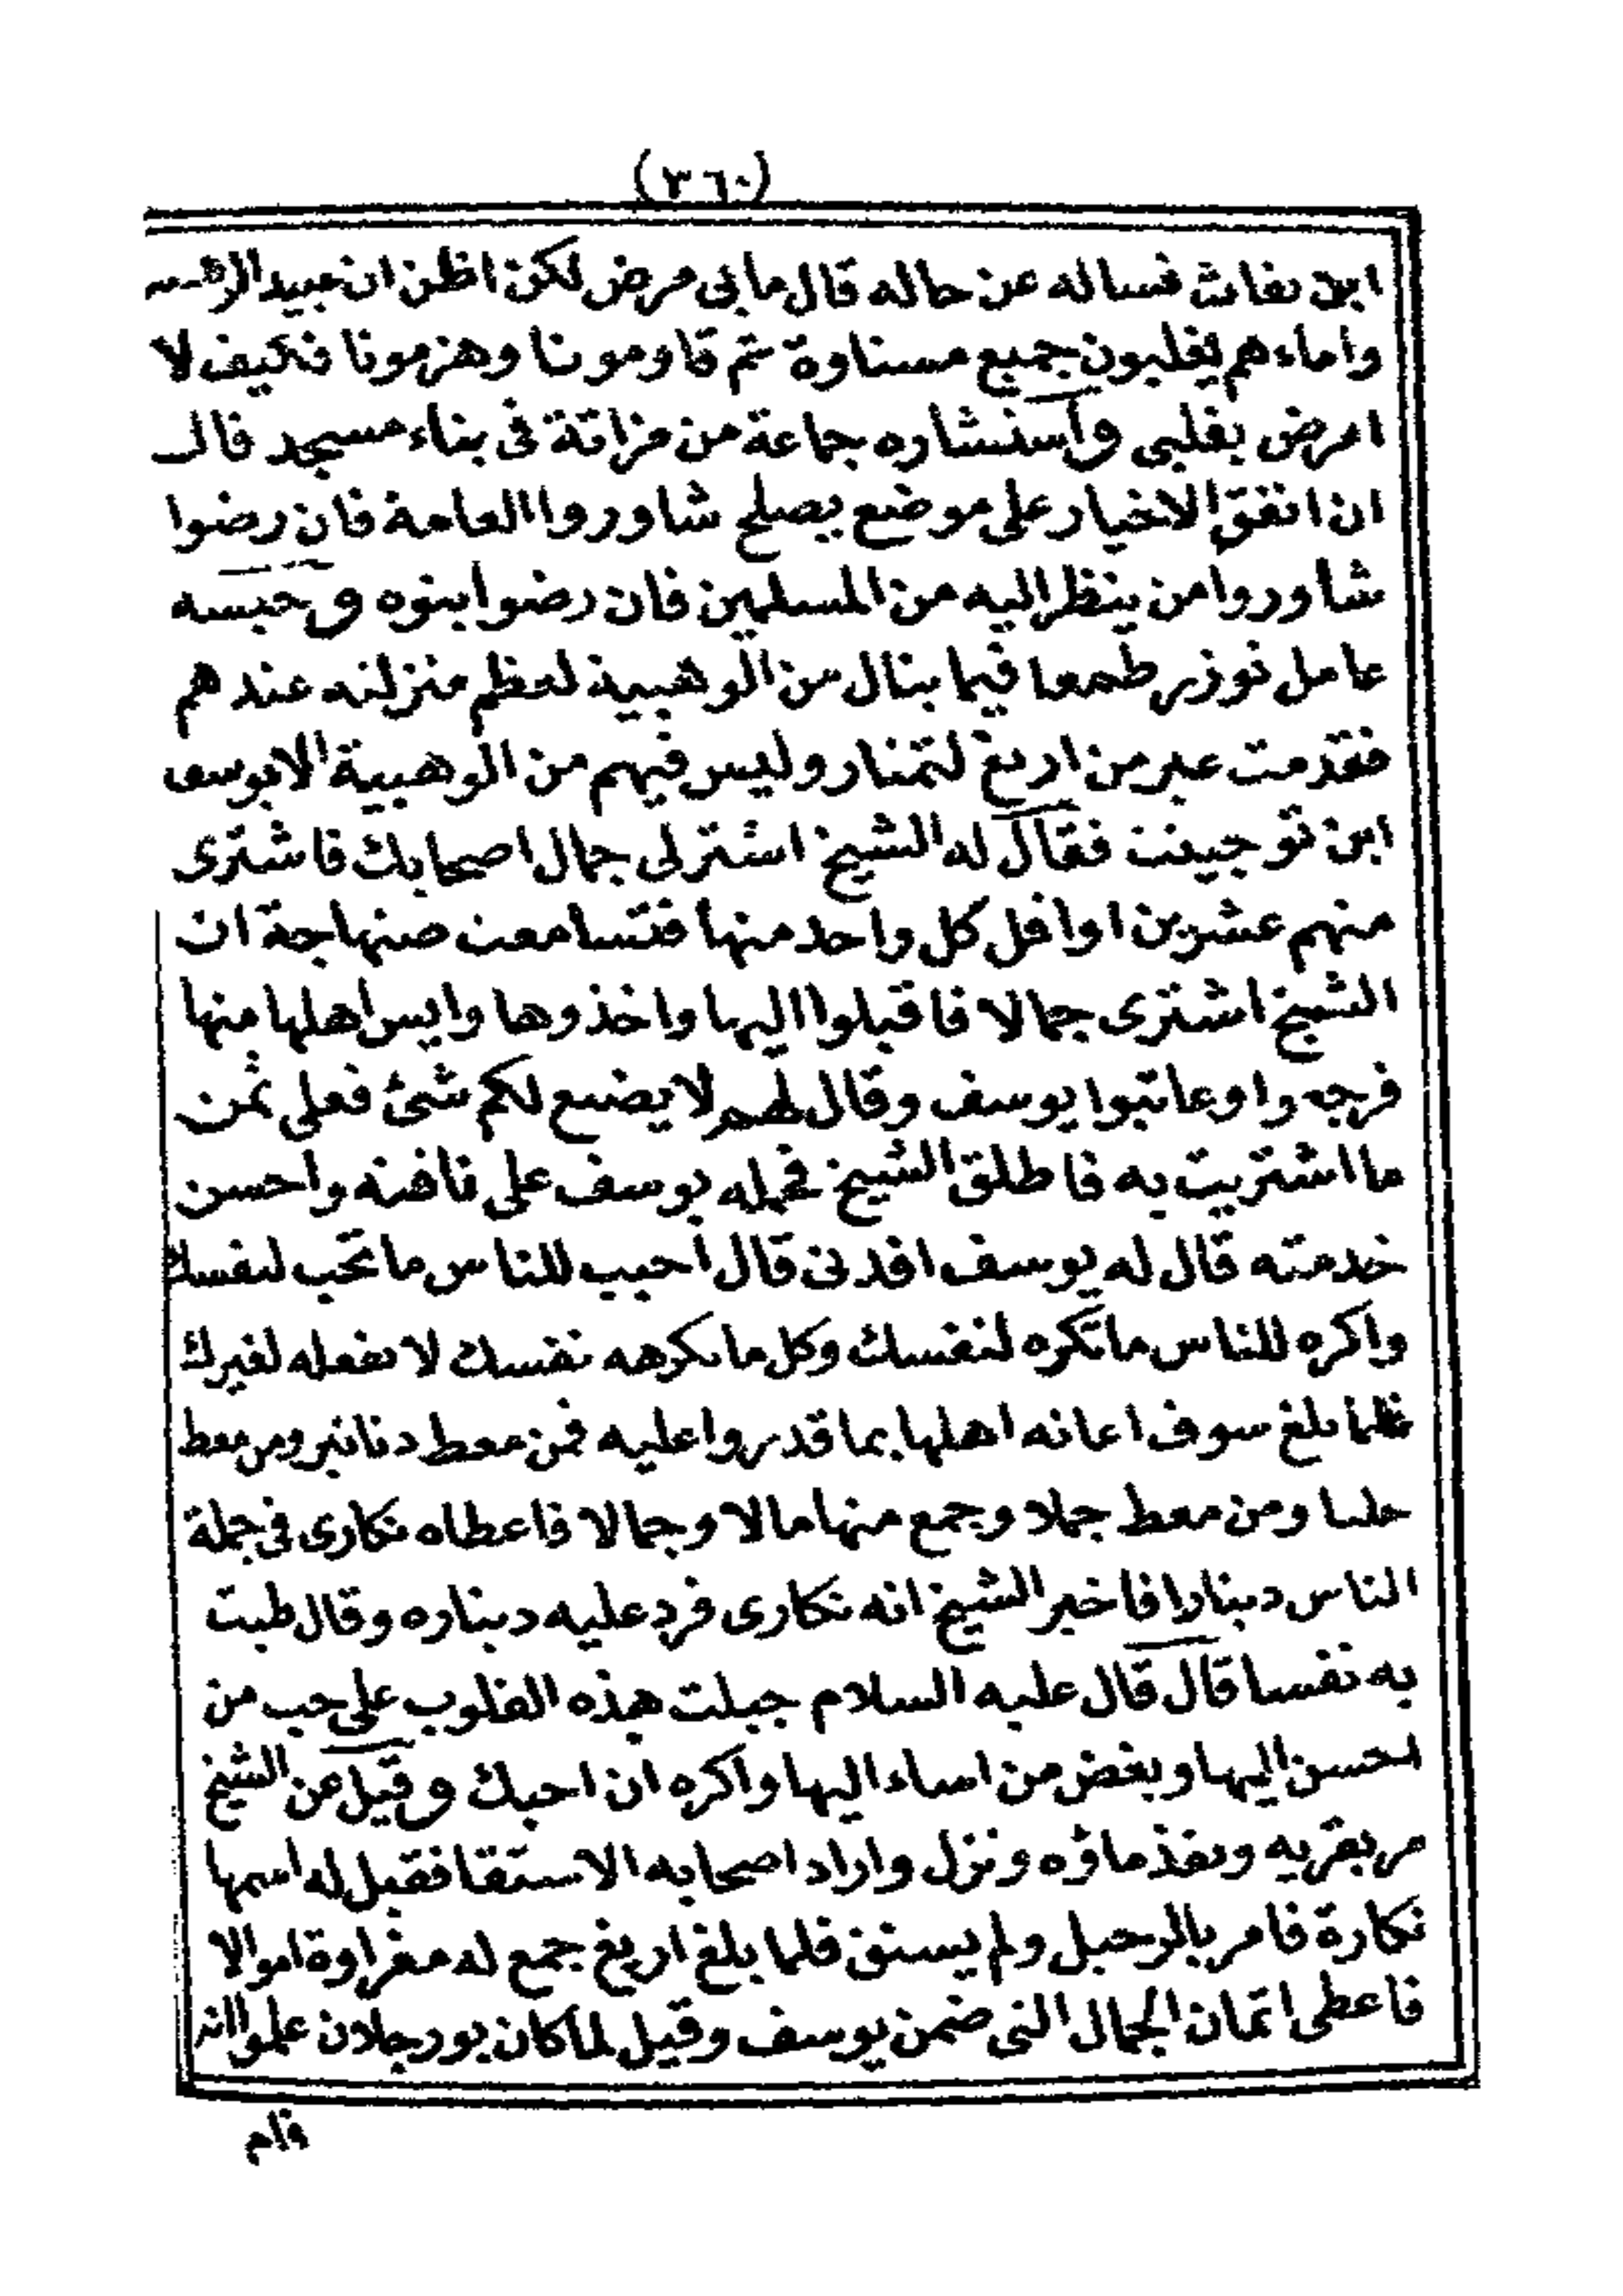 (٣٦٠)
ابن نفاث فساله عن حاله قال ما بى مرض لكن اظن ان عبيد
واماءهم يغلبون جميع مسناوة ثم قاومونا وهزمونا فكيف لا
امرض بقلبى واستشاره جماعة من مزاتة فى بناء مسجد قال
ان اتفق الاخيار على موضع يصلح شاوروا العامة فان رضوا
شاوروا من ينظر اليه من المسلمين فان رضوا بنوه وحبسه
عامل توزر طمعا فيما ينال من الوهبية لعظم منزلته عندهم
فقدمت عير من اريغ لتمنار وليس فيهم من الوهبية الا يوسف
ابن توجينت فقال له الشيخ اشتر لى جمال اصحابك فاشترى
منهم عشرين او اقل كل واحد منها فتسامعت صنهاجة ان
الشيخ اشترى جمالا فاقبلوا اليها واخذوها وايس اهلها منها
فرجعوا وعاتبوا يوسف وقال لهم لا يضيع لكم شئ فعلى ثمن
ما اشتريت به فاطلق الشيخ فحمله يوسف على ناقته واحسن
خدمته قال له يوسف افدنى قال احبب للناس ما تحب لنفسك
واكره للناس ما تكره لنفسك وكل ما تكرهه نفسك لا تفعله لغيرك
فلما بلغ سوف اعانه اهلها بما قدروا عليه فمن معط دنانير ومن معط
حليا ومن معط جملا وجمع منها مالا وجمالا فاعطاه نكارى فى جملة
الناس دينارا فاخبر الشيخ انه نكارى فرد عليه ديناره وقال طبت
به نفسا قال قال عليه السلام جبلت هذه القلوب على حب من
احسن اليها وبغض من اساء اليها واكره ان احبك وقيل عن الشيخ
مر بقرية ونفذ ماؤه ونزل واراد اصحابه الاستقا فقيل له اسمها
نكارة فامر بالرحيل ولم يستق فلما بلغ اريغ جمع له مغراوة اموالا
فاعطى اثمان الجمال التى ضمن يوسف وقيل لما كان بورجلان علموا انه